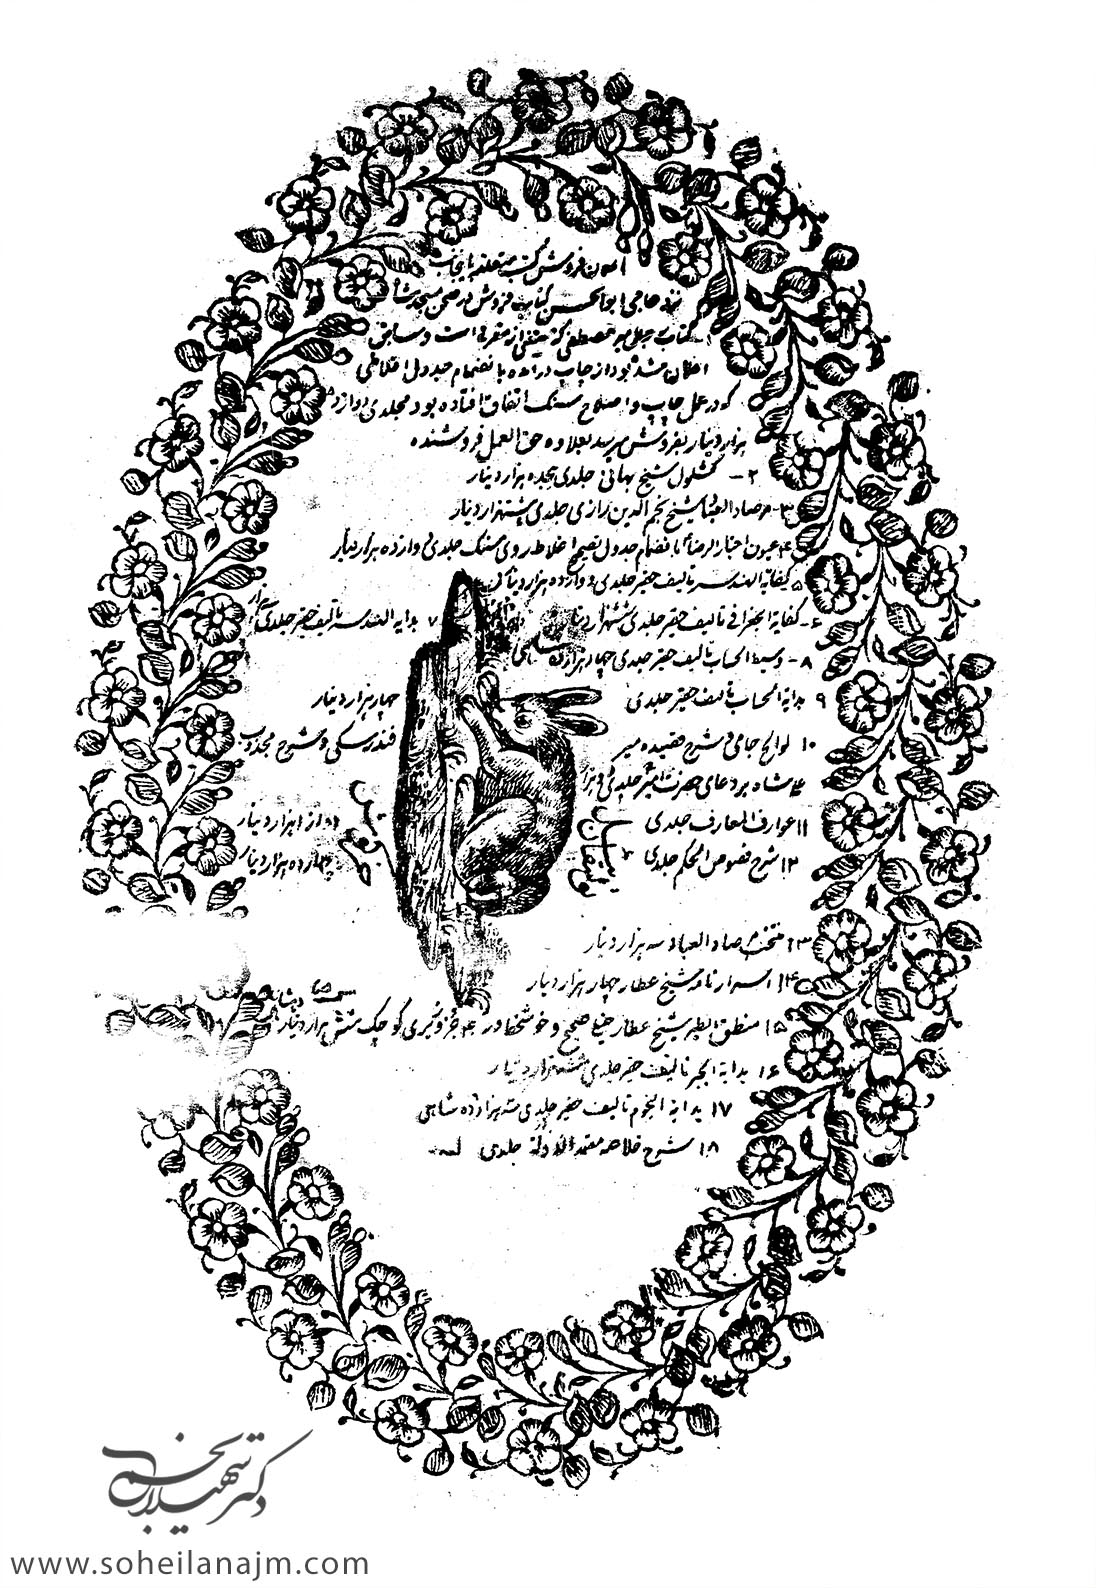 اعلان فروش کتب متعلقه باینجانب
نزد حاجی ابوالحسن کتاب فروش در صحن مسجد شاه
۱- کتاب جبلی میر مصطفی که مغنی از معرفی است و سابق
اعلان شده بود از چاپ درآمده با انضمام جدول اغلاطی
که در عمل چاپ و اصلاح سنگ اتفاق افتاده بود مجلدی دوازده
هزار دینار بفروش میرسد بعلاوه حق العمل فروشنده
۲- کشکول شیخ بهائی جلدی هیجده هزار دینار
۳- مرصاد العباد شیخ نجم الدین رازی جلدی هشتهزار دینار
۴- عیون اخبار الرضا با انضمام جدول تصحیح اغلاط روی سنگ جلدی دوازده هزار دینار
۵ کفایة الهندسه تالیف حقیر جلدی دوازده هزار دینار
۶- کفایة الجغرافی تالیف حقیر جلدی ششهزار دینار ۷ بدایه الهندسه تالیف حقیر جلدی
۸- وسیط الحساب تالیف حقیر جلدی چهار هزار ده شاهی
۹ بدایة الحساب تالیف حقیر جلدی چهار هزار دینار
۱۰ لوایح جامی و شرح قصیده میر فندرسکی و شرح مجذوب
علیشاه بر دعای حضرت امیر جلدی
۱۱ عوارف المعارف جلدی دوازده هزار دینار
۱۲ شرح فصوص الحکم جلدی چهارده هزار دینار
۱۳ منتخب مرصاد العباد سه هزار دینار
۱۴ اسرار نامه شیخ عطار چهار هزار دینار
۱۵ منطق الطیر شیخ عطار خیلی صحیح و خوشخط در جزو جیبی کوچک شش هزار دینار
۱۶ بدایة الجبر تالیف حقیر جلدی ششهزار دینار
۱۷ بدایة النجوم تالیف حقیر جلدی سه هزار ده شاهی
۱۸ شرح خلاصه جلدی
دکتر سهیلا نجم
www.soheilanajm.com